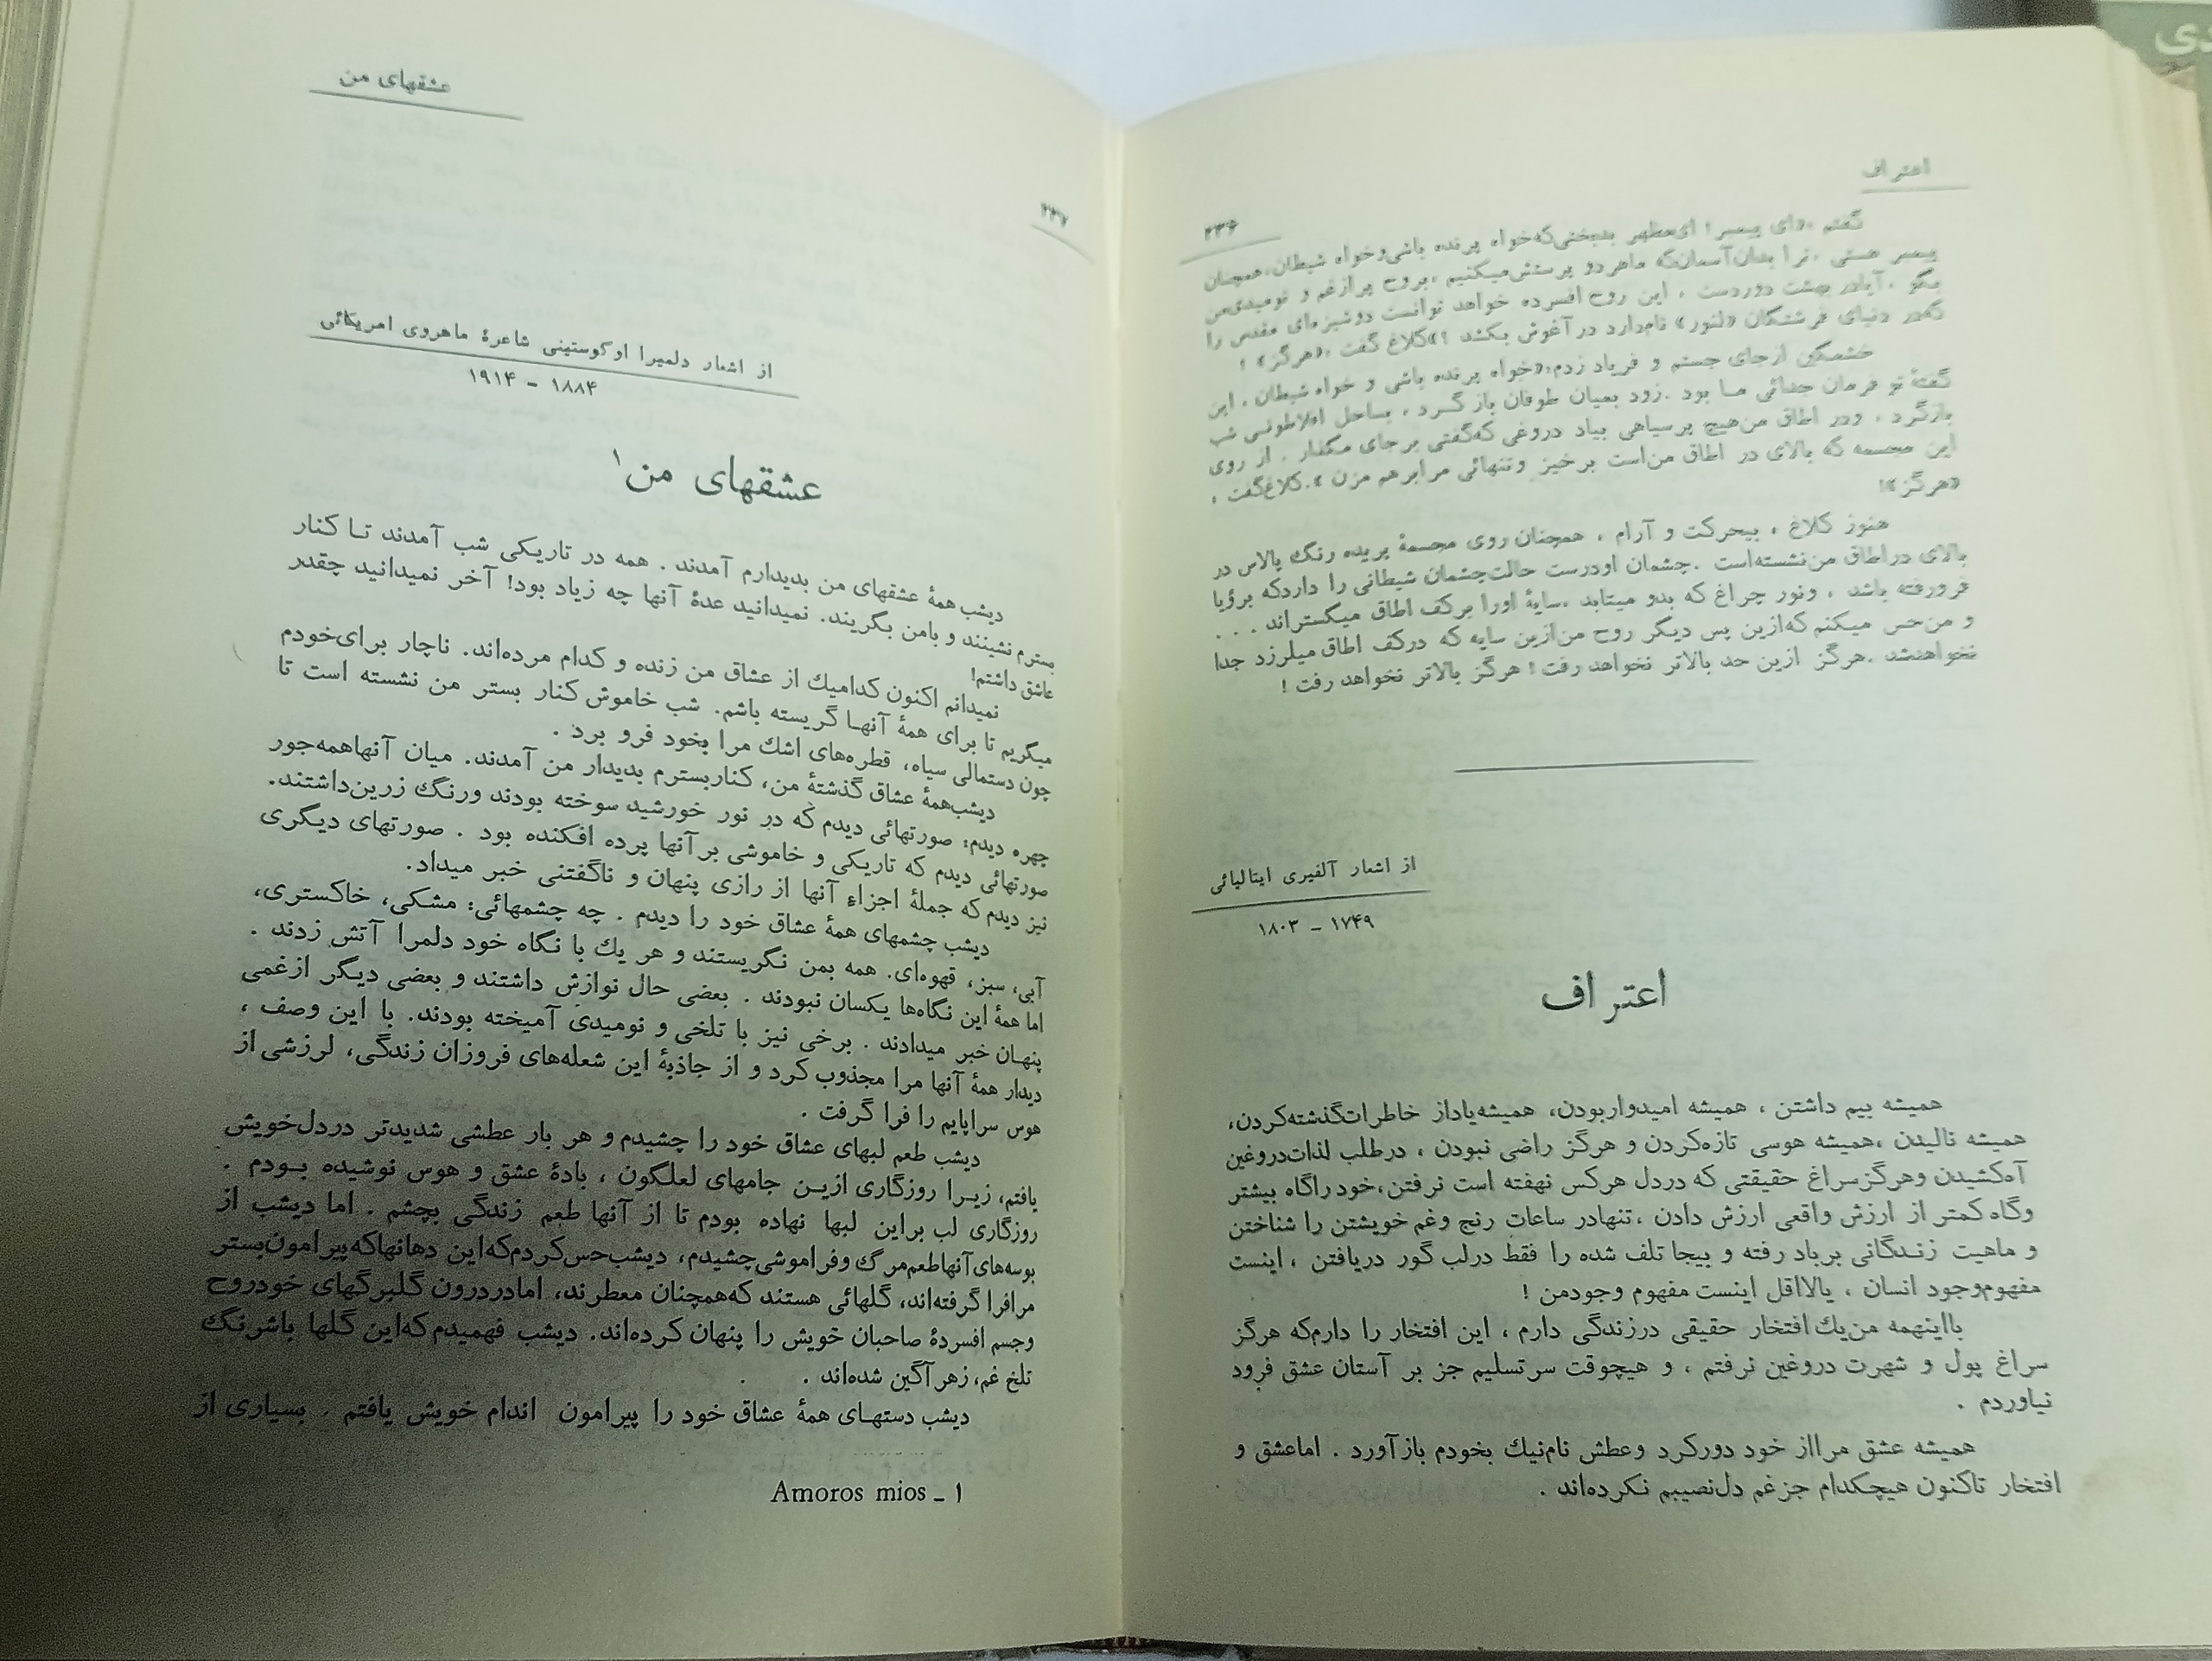 اعتراف
۲۳۶
گفتم «ای پیمبر! ای مظهر بدبختی که خواه پرنده باشی و خواه شیطان، همچنان
پیمبر هستی، ترا بدان آسمان که ما هر دو پرستش میکنیم، بروح پر از غم و نومیدی من
بگو، آیا در بهشت دوردست، این روح افسرده خواهد توانست دوشیزه‌ای مقدس را
که در دنیای فرشتگان «لنور» نام دارد در آغوش بکشد؟» کلاغ گفت «هرگز»!
خشمگین ازجای جستم و فریاد زدم: «خواه پرنده باشی و خواه شیطان، این
گفتهٔ تو فرمان جدائی ما بود. زود بمیان طوفان باز گرد، بساحل افلاطونی شب
بازگرد، ودر اطاق من هیچ پر سیاهی بیاد دروغی که گفتی برجای مگذار. از روی
این مجسمه که بالای در اطاق من است برخیز و تنهائی مرا برهم مزن». کلاغ گفت،
«هرگز»!
هنوز کلاغ، بیحرکت و آرام، همچنان روی مجسمهٔ پریده رنگ پالاس در
بالای در اطاق من نشسته است. چشمان او درست حالت چشمان شیطانی را دارد که برؤیا
فرورفته باشد، ونور چراغ که بدو میتابد، سایهٔ اورا برکف اطاق میگستراند...
و من حس میکنم که ازین پس دیگر روح من ازین سایه که در کف اطاق میلرزد جدا
نخواهد شد. هرگز ازین حد بالاتر نخواهد رفت! هرگز بالاتر نخواهد رفت!
از اشعار آلفیری ایتالیائی
۱۷۴۹ - ۱۸۰۳
اعتراف
همیشه بیم داشتن، همیشه امیدوار بودن، همیشه یاد از خاطرات گذشته کردن،
همیشه نالیدن، همیشه هوسی تازه کردن و هرگز راضی نبودن، در طلب لذات دروغین
آه کشیدن و هرگز سراغ حقیقتی که در دل هرکس نهفته است نرفتن، خود را گاه بیشتر
وگاه کمتر از ارزش واقعی ارزش دادن، تنها در ساعات رنج وغم خویشتن را شناختن
و ماهیت زندگانی بر باد رفته و بیجا تلف شده را فقط در لب گور دریافتن، اینست
مفهوم وجود انسان، یا لااقل اینست مفهوم وجود من!
با اینهمه من یك افتخار حقیقی در زندگی دارم، این افتخار را دارم که هرگز
سراغ پول و شهرت دروغین نرفتم، و هیچوقت سر تسلیم جز بر آستان عشق فرود
نیاوردم.
همیشه عشق مرا از خود دور کرد و عطش نام نیك بخودم باز آورد. اما عشق و
افتخار تاکنون هیچکدام جز غم دل نصیبم نکرده‌اند.
عشقهای من
۲۳۷
از اشعار دلمیرا اوگوستینی شاعرهٔ ماهروی امریکائی
۱۸۸۴ - ۱۹۱۴
عشقهای من۱
دیشب همهٔ عشقهای من بدیدارم آمدند. همه در تاریکی شب آمدند تا کنار
بسترم نشینند و بامن بگریند. نمیدانید عدهٔ آنها چه زیاد بود! آخر نمیدانید چقدر
عاشق داشتم!
نمیدانم اکنون کدامیك از عشاق من زنده و کدام مرده‌اند. ناچار برای خودم
میگریم تا برای همهٔ آنها گریسته باشم. شب خاموش کنار بستر من نشسته است تا
چون دستمالی سیاه، قطره‌های اشك مرا بخود فرو برد.
دیشب همهٔ عشاق گذشتهٔ من، کنار بسترم بدیدار من آمدند. میان آنها همه‌جور
چهره دیدم: صورتهائی دیدم که در نور خورشید سوخته بودند ورنگ زرین داشتند.
صورتهائی دیدم که تاریکی و خاموشی بر آنها پرده افکنده بود. صورتهای دیگری
نیز دیدم که جملهٔ اجزاء آنها از رازی پنهان و ناگفتنی خبر میداد.
دیشب چشمهای همهٔ عشاق خود را دیدم. چه چشمهائی: مشکی، خاکستری،
آبی، سبز، قهوه‌ای. همه بمن نگریستند و هر یك با نگاه خود دلمرا آتش زدند.
اما همهٔ این نگاه‌ها یکسان نبودند. بعضی حال نوازش داشتند و بعضی دیگر ازغمی
پنهان خبر میدادند. برخی نیز با تلخی و نومیدی آمیخته بودند. با این وصف،
دیدار همهٔ آنها مرا مجذوب کرد و از جاذبهٔ این شعله‌های فروزان زندگی، لرزشی از
هوس سراپایم را فرا گرفت.
دیشب طعم لبهای عشاق خود را چشیدم و هر بار عطشی شدیدتر در دل خویش
یافتم، زیرا روزگاری ازین جامهای لعلگون، بادهٔ عشق و هوس نوشیده بودم.
روزگاری لب براین لبها نهاده بودم تا از آنها طعم زندگی بچشم. اما دیشب از
بوسه‌های آنها طعم مرگ و فراموشی چشیدم، دیشب حس کردم که این دهانها که پیرامون بستر
مرا فرا گرفته‌اند، گلهائی هستند که همچنان معطرند، اما در درون گلبرگهای خود روح
وجسم افسردهٔ صاحبان خویش را پنهان کرده‌اند. دیشب فهمیدم که این گلها باشرنگ
تلخ غم، زهر آگین شده‌اند.
دیشب دستهای همهٔ عشاق خود را پیرامون اندام خویش یافتم. بسیاری از
۱ - Amoros mios